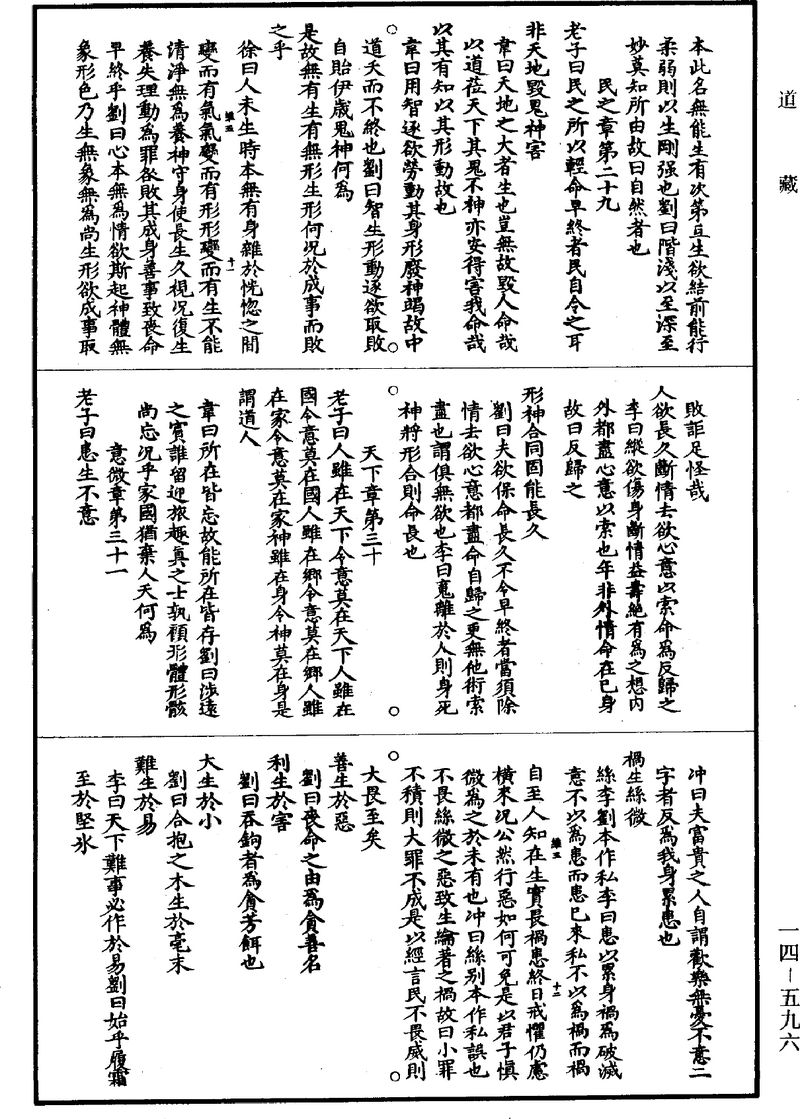 道藏
本此名無能生有次第亘生欲結前能行
柔弱則以生剛强也劉曰階淺以至深至
妙莫知所由故曰自然者也
民之章第二十九
老子曰民之所以輕命早終者民自令之耳
非天地毀鬼神害
韋曰天地之大者生也豈無故毀人命哉
以道莅天下其鬼不神亦安得害我命哉
以其有知以其形動故也
韋曰用智逐欲勞動其身形廢神竭故中
道夭而不終也劉曰智生形動逐欲取敗
自貽伊慼鬼神何為
是故無有生有無形生形何况於成事而敗
之乎
徐曰人未生時本無有身雜於恍惚之間
變而有氣氣變而有形形變而有生不能
清淨無為養神守身使長生久視况復生
養失理動為罪咎敗其成身善事致喪命
早終乎劉曰心本無為情欲斯起神體無
象形色乃生無象無為尚生形欲成事取
敗詎足怪哉
人欲長久斷情去欲心意以索命為反歸之
李曰縱欲傷身斷情益壽絕有為之想内
外都盡心意以索也年非外情命在已身
故曰反歸之
形神合同固能長久
劉曰夫欲保命長久不令早終者當須除
情去欲心意都盡命自歸之更無他術索
盡也謂俱無欲也李曰鬼離於人則身死
神將形合則命長也
天下章第三十
老子曰人雖在天下令意莫在天下人雖在
國令意莫在國人雖在鄉令意莫在鄉人雖
在家令意莫在家神雖在身令神莫在身是
謂道人
韋曰所在皆忘故能所在皆存劉曰涉遠
之賓誰留迎旅趣真之士孰顧形體形骸
尚忘况乎家國猶棄人天何為
意微章第三十一
老子曰患生不意
冲曰夫富貴之人自謂歡樂無憂不意二
字者反為我身累患也
禍生絲微
絲李劉本作私李曰患以累身禍為破滅
意不以為患而患已來私不以為禍而禍
自至人知在生實畏禍患終日戒懼仍慮
橫來况公然行惡如何可免是以君子慎
微為之於未有也冲曰絲別本作私誤也
不畏絲微之惡致生綸著之禍故曰小罪
不積則大罪不成是以經言民不畏威則
大畏至矣
善生於惡
劉曰喪命之由為貪善名
利生於害
劉曰吞鉤者為貪芳餌也
大生於小
劉曰合抱之木生於毫末
難生於易
李曰天下難事必作於易劉曰始乎履霜
至於堅氷
一四－五九六